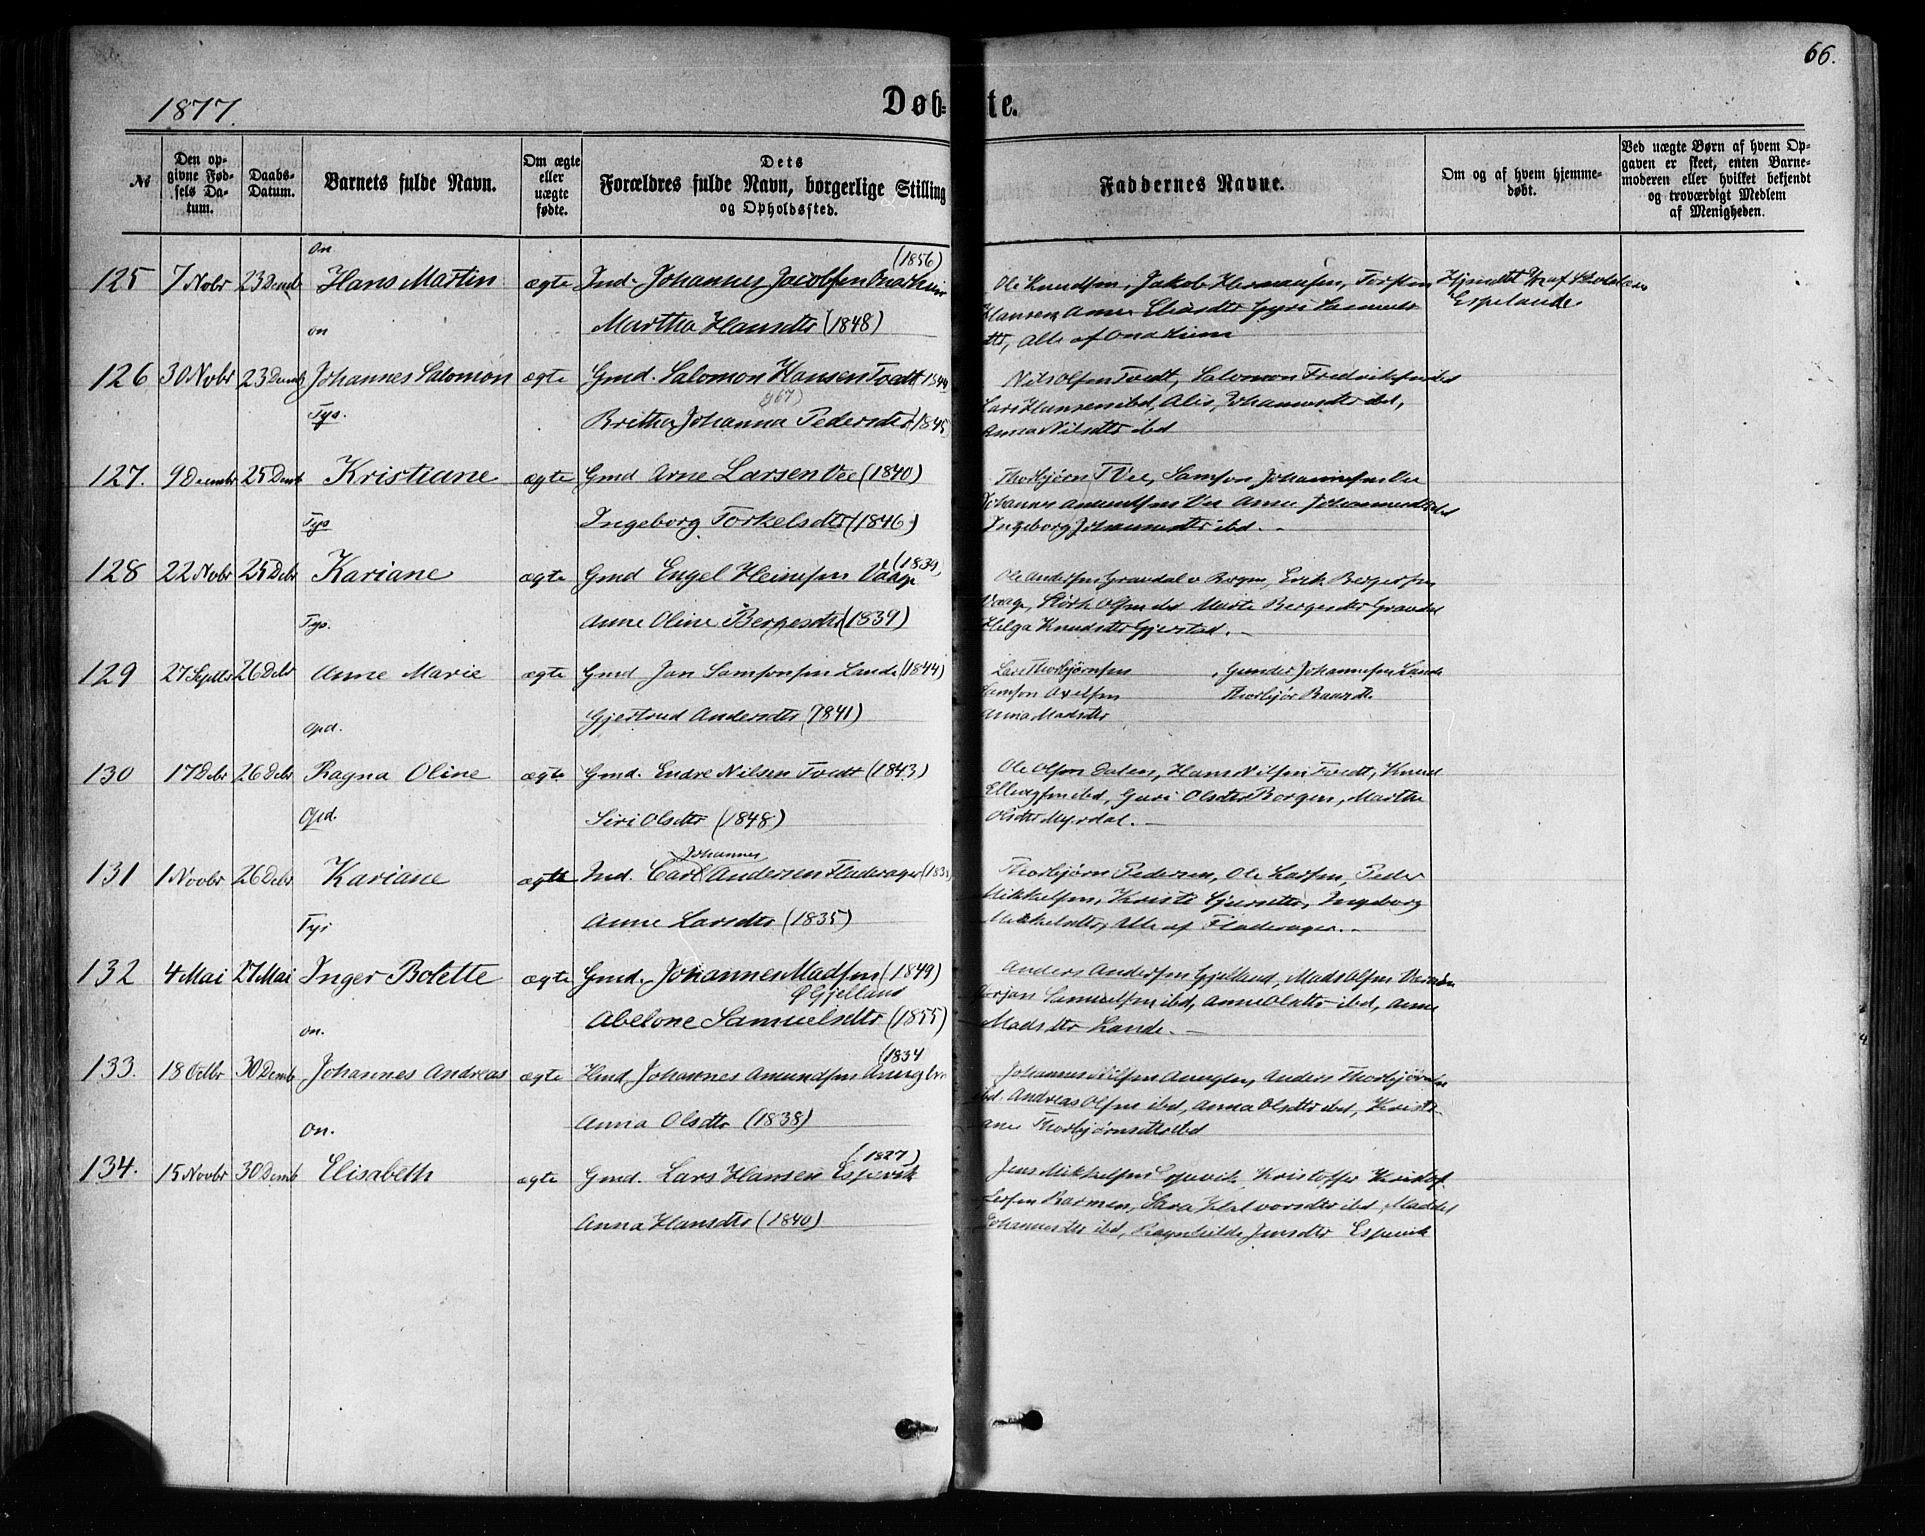 66.
1877.
Døb- te.
No
Den opgivne Fødsels Datum.
Daabs-Datum.
Barnets fulde Navn.
Om ægte eller uægte fødte.
Dets Forældres fulde Navn, borgerlige Stilling og Opholdssted.
Faddernes Navne.
Om og af hvem hjemmedøbt.
Ved uægte Børn af hvem Opgaven er skeet, enten Barnemoderen eller hvilket bekjendt og troværdigt Medlem af Menigheden.
On
125 7 Novbr 23 Decmb Hans Martin ægte Ind. Johannes Jacobsen Onarheim (1856)
Martha Hansdtr (1848)
Ole Knudsen, Jakob Hermansen, Torsten
Hansen, Anna Eliasdtr Gyri Samuels
dtr, Alle af Onarheim
Hjemdøbt af
Espelande
on
126 30 Novbr 23 Decmb Johannes Salomon ægte Gmd. Salomon Hansen Tvedt 1844
Britha Johanna Pedersdtr (1845
Nils Olsen Tvedt, Salomon Fredriksen ibd
Lars Hansen ibd, Alis Johannesdtr ibd,
Anna Nilsdtr ibd
Tys.
127. 9 Decembr 25 Decmb Kristiane ægte Gmd Arne Larsen Vee (1840)
Ingeborg Torkelsdtr (1846)
Thorbjørn T Vee, Samson Johannesen Vee
Johannes Amundsen Vee Anna Johannesdtr ibd
Ingeborg Johannesdtr ibd. -
Tys
128 22 Novbr 25 Debr Kariane ægte Gmd Engel Heinesen Vaage (1839)
Anne Oline Bergesdtr (1839)
Ole Andersen Gravdal Erik Bergesen
Vaage, Olsen ibd Marte Bergesdtr Gravdal
Helga Knudsdtr Gjerstad. -
Tys.
129 27 Septbr 26 Debr Anne Marie ægte Gmd Jan Samsonsen Lande (1844)
Gjertrud Andersdtr (1841)
Lars Thorbjørnsen , Gunder Johannesen Lande
Samson Axelsen Thorbjør
Anna Madsdtr
Opd.
130 17 Debr 26 Debr Ragna Oline ægte Gmd. Endre Nilsen Tvedt (1843)
Siri Olsdtr (1848)
Ole Olsen Dalen, Hans Nilsen Tvedt, Knud
Ellingsen ibd, Guri Olsdtr Borgen, Martha
Olsdtr Myrdal. -
Opd.
131 1 Novbr 26 Debr Kariane ægte Ind. Carl Johannes Andersen Fladerager (183
Anne Larsdtr (1835)
Thorbjørn Pedersen, Ole Larsen, Peder
Mikkelsen, Kristi Ingeborg
Mikkelsdtr, Alle af Fladerager. -
Tys
132 4 Mai 27 Mai Inger Bolette ægte Gmd. Johannes Madsen (1849)
Ø Gjelland
Abelone Samuelsdtr (1855)
Anders Andersen Gjelland, Mads Olsen
Samuelsen ibd, Anna Olsdtr ibd, Anna
Madsdtr Lande. -
on.
133. 18 Octbr 30 Decmb Johannes Andreas ægte Hmd Johannes Amundsen (1834
Anna Olsdtr (1838)
Johannes Nilsen Anders Thorbjørnsen
ibd Andreas Olsen ibd, Anna Olsdtr ibd, Kristi-
ane Thorbjørnsdtr ibd
On.
134. 15 Novbr 30 Decmb Elisabeth ægte Gmd. Lars Hansen Espevik (1827)
Anna Hansdtr (1840)
Jens Mikkelsen Espevik, Kristoffer Kristof-
fersen Barmen, Sara Halvorsdtr ibd,
Johannesdtr ibd, Ragnhilde Jensdtr Espevik